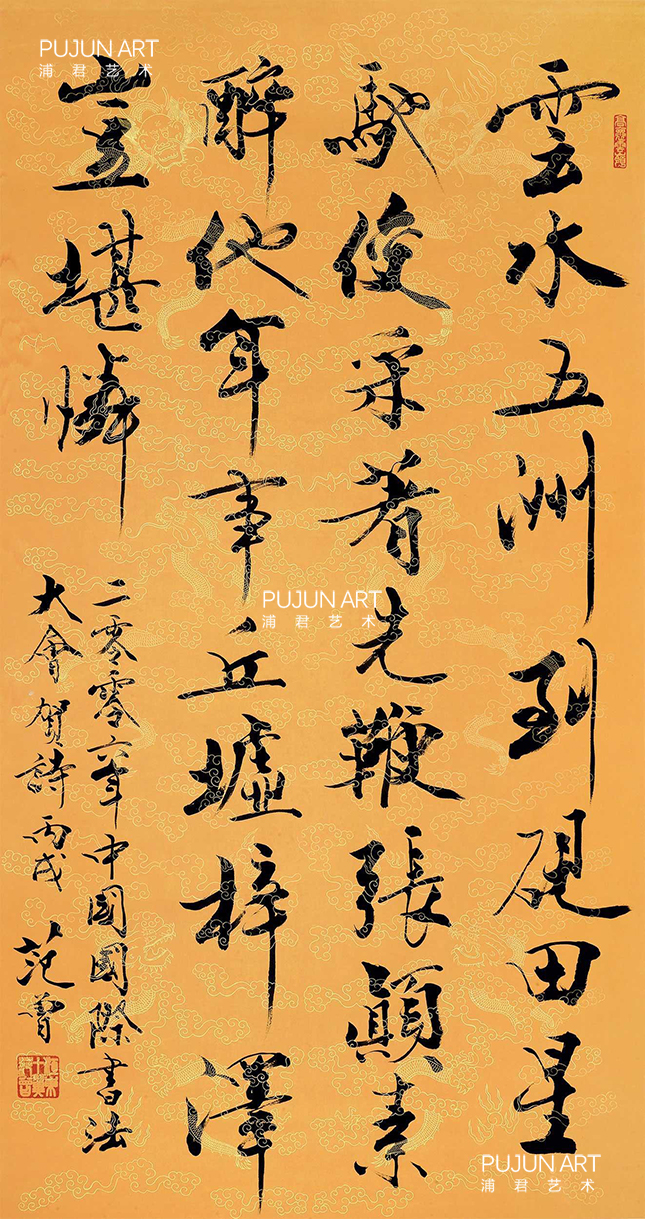 雲水五洲到硯田星
馳俊采着先鞭張顛素
醉他年事丘墟梓澤
豈堪憐
二零零六年中國國際書法
大會賀詩丙戌 范曾
PUJUN ART
浦君艺术
PUJUN ART
浦君艺术
PUJUN ART
浦君艺术